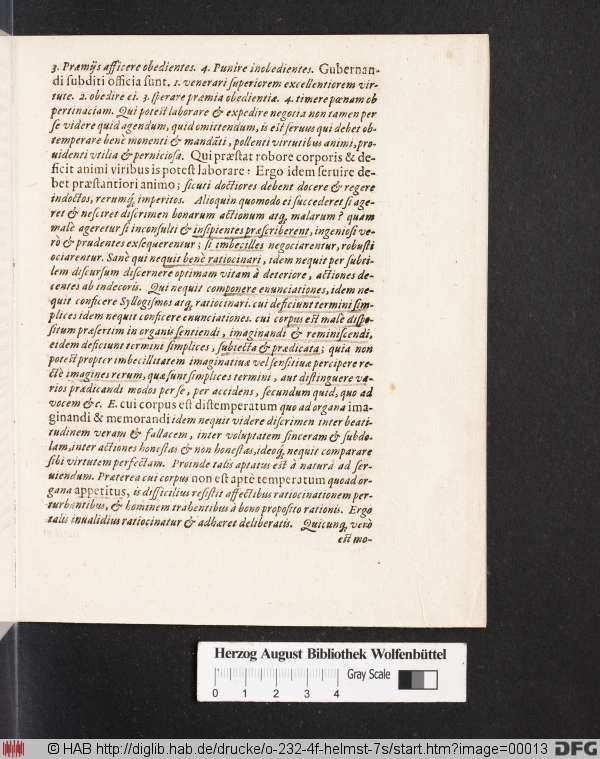 3. Præmijs afficere obedientes. 4. Punire inobedientes. Gubernan-
di subditi officia sunt. 1. venerari superiorem excellentiorem vir-
tute. 2. obedire ei. 3. sperare præmia obedientiæ. 4. timere pœnam ob
pertinaciam. Qui potest laborare & expedire negotia non tamen per
se videre quid agendum, quid omittendum, is est seruus qui debet ob-
temperare benè monenti & mandāti, pollenti virtutibus animi, pro-
uidenti vtilia & perniciosa. Qui præstat robore corporis & de-
ficit animi viribus is potest laborare: Ergo idem seruire de-
bet præstantiori animo; sicuti doctiores debent docere & regere
indoctos, rerumq́ imperitos. Alioquin quomodo ei succederet si age-
ret & nesciret discrimen bonarum actionum atq́ malarum? quam
malè ageretur si inconsulti & insipientes præscriberent, ingeniosi ve-
rò & prudentes exsequerentur; si imbecilles negociarentur, robusti
ociarentur. Sanè qui nequit benè ratiocinari, idem nequit per subti-
lem discursum discernere optimam vitam à deteriore, actiones de-
centes ab indecoris. Qui nequit componere enunciationes, idem ne-
quit conficere Syllogismos atq́ ratiocinari. cui deficiunt termini sim-
plices idem nequit conficere enunciationes. cui corpus est malè dispo-
situm præsertim in organis sentiendi, imaginandi & reminiscendi,
eidem deficiunt termini simplices, subiecta & prædicata; quia non
potest propter imbecillitatem imaginatiuæ vel sensitiuæ percipere re-
ctè imagines rerum, quæ sunt simplices termini, aut distinguere va-
rios prædicandi modos per se, per accidens, secundum quid, quo ad
vocem &c. E. cui corpus est distemperatum quo ad organa ima-
ginandi & memorandi idem nequit videre discrimen inter beati-
tudinem veram & fallacem, inter voluptatem sinceram & subdo-
lam, inter actiones honestas & non honestas, ideoq́ nequit comparare
sibi virtutem perfectam. Proinde talis aptatus est à naturâ ad ser-
uiendum. Præterea cui corpus non est aptè temperatum quoad or-
gana appetitus, is difficilius resistit affectibus ratiocinationem per-
turbantibus, & hominem trahentibus à bono proposito rationis. Ergo
talis inualidius ratiocinatur & adhæret deliberatis. Quicunq́ verò
est mo-
Herzog August Bibliothek Wolfenbüttel
Gray Scale
0 1 2 3 4
© HAB http://diglib.hab.de/drucke/o-232-4f-helmst-7s/start.htm?image=00013
DFG